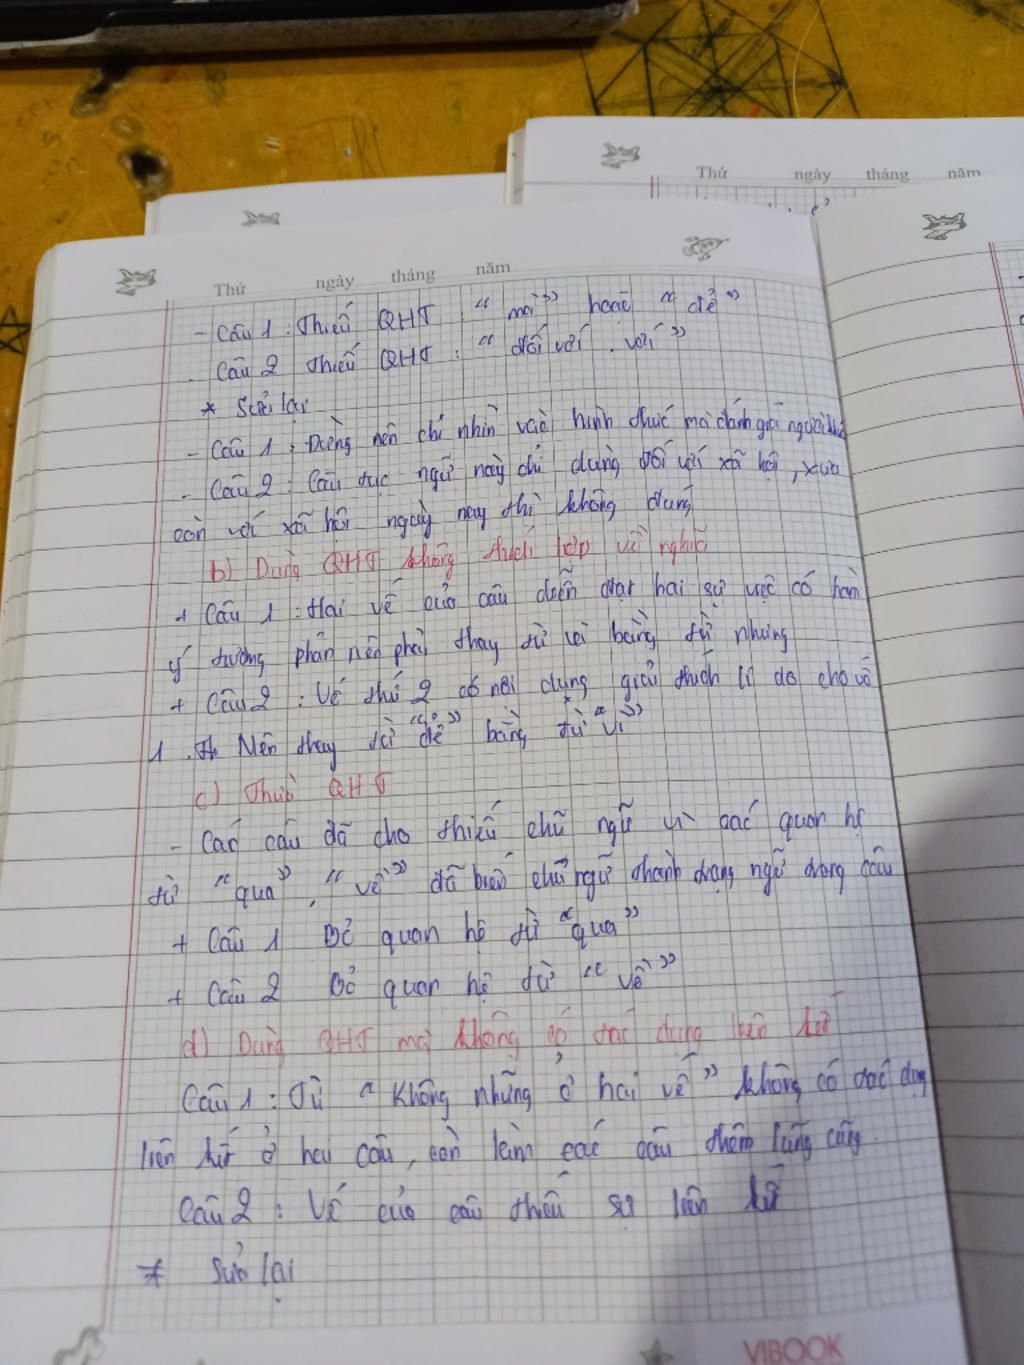 Thứ ngày tháng năm
Thứ ngày tháng năm
- Câu 1 : Thiếu QHT " mà" hoặc " để"
Câu 2 Thiếu QHT : " đối với , với "
* Sửa lại
- Câu 1 : Đừng nên chỉ nhìn vào hình thức mà đánh giá người khác
- Câu 2 : Câu tục ngữ này chỉ đúng đối với xã hội , xưa
còn với xã hội ngày nay thì không đúng
b) Dùng QHT không thích hợp về nghĩa
+ Câu 1 : Hai vế của câu diễn đạt hai sự việc có hàm
ý tương phản nên phải thay từ và bằng từ nhưng
+ Câu 2 : Vế thứ 2 có nội dung giải thích lí do cho vế
1 . Nên thay từ "để" bằng từ " vì"
c) Thừa QHT
- Các câu đã cho thiếu chủ ngữ vì các quan hệ
từ "qua" , " về" đã biến chủ ngữ thành trạng ngữ trong câu
+ Câu 1 Bỏ quan hệ từ "qua"
+ Câu 2 Bỏ quan hệ từ " về"
d) Dùng QHT mà không có tác dụng liên kết
Câu 1 : Từ " Không những ở hai vế" không có tác dụng
liên kết ở hai câu, còn làm các câu thêm lủng củng.
Câu 2 : Vế của câu thiếu sự liên kết
* Sửa lại
VIBOOK